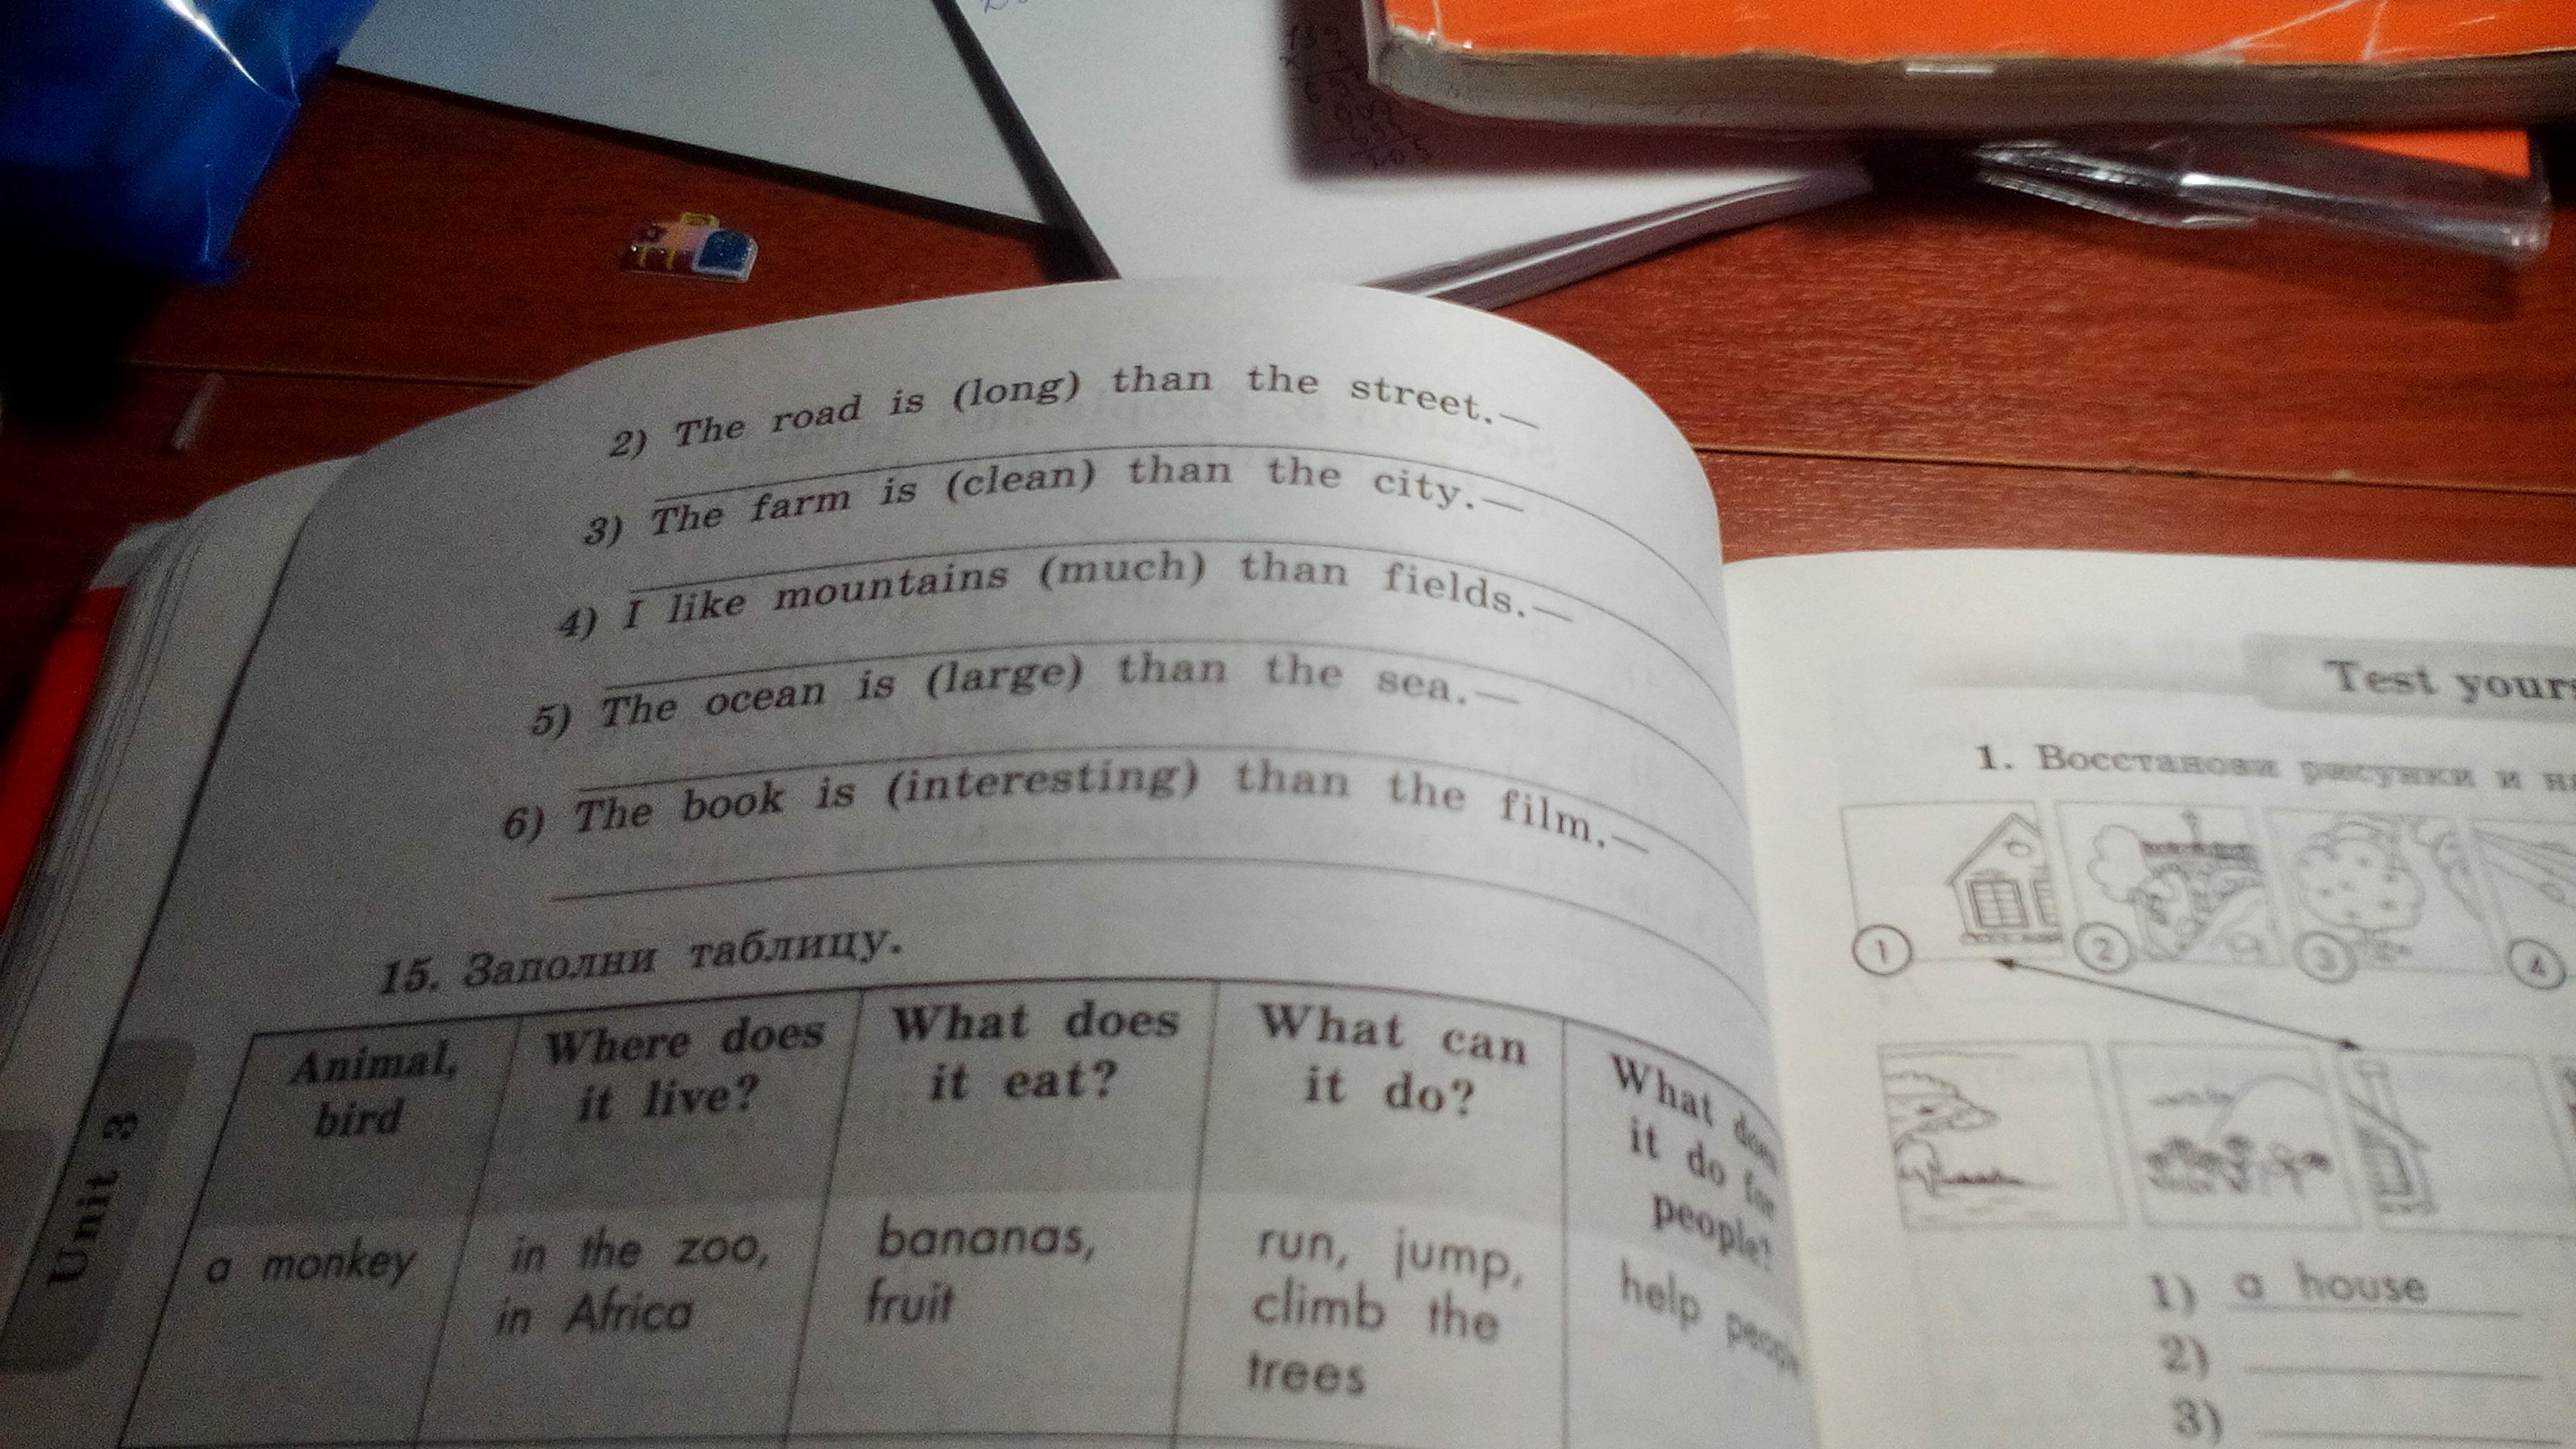 2) The road is (long) than the street.—
3) The farm is (clean) than the city.—
4) I like mountains (much) than fields.—
5) The ocean is (large) than the sea.—
6) The book is (interesting) than the film.—
15. Заполни таблицу.
Animal,
bird
Where does
it live?
What does
it eat?
What can
it do?
What does
it do for
people?
a monkey
in the zoo,
in Africa
bananas,
fruit
run, jump,
climb the
trees
help people
Unit 3
Test
1. Восстанови рисунки и
1
2
3
4
1) a house
2)
3)